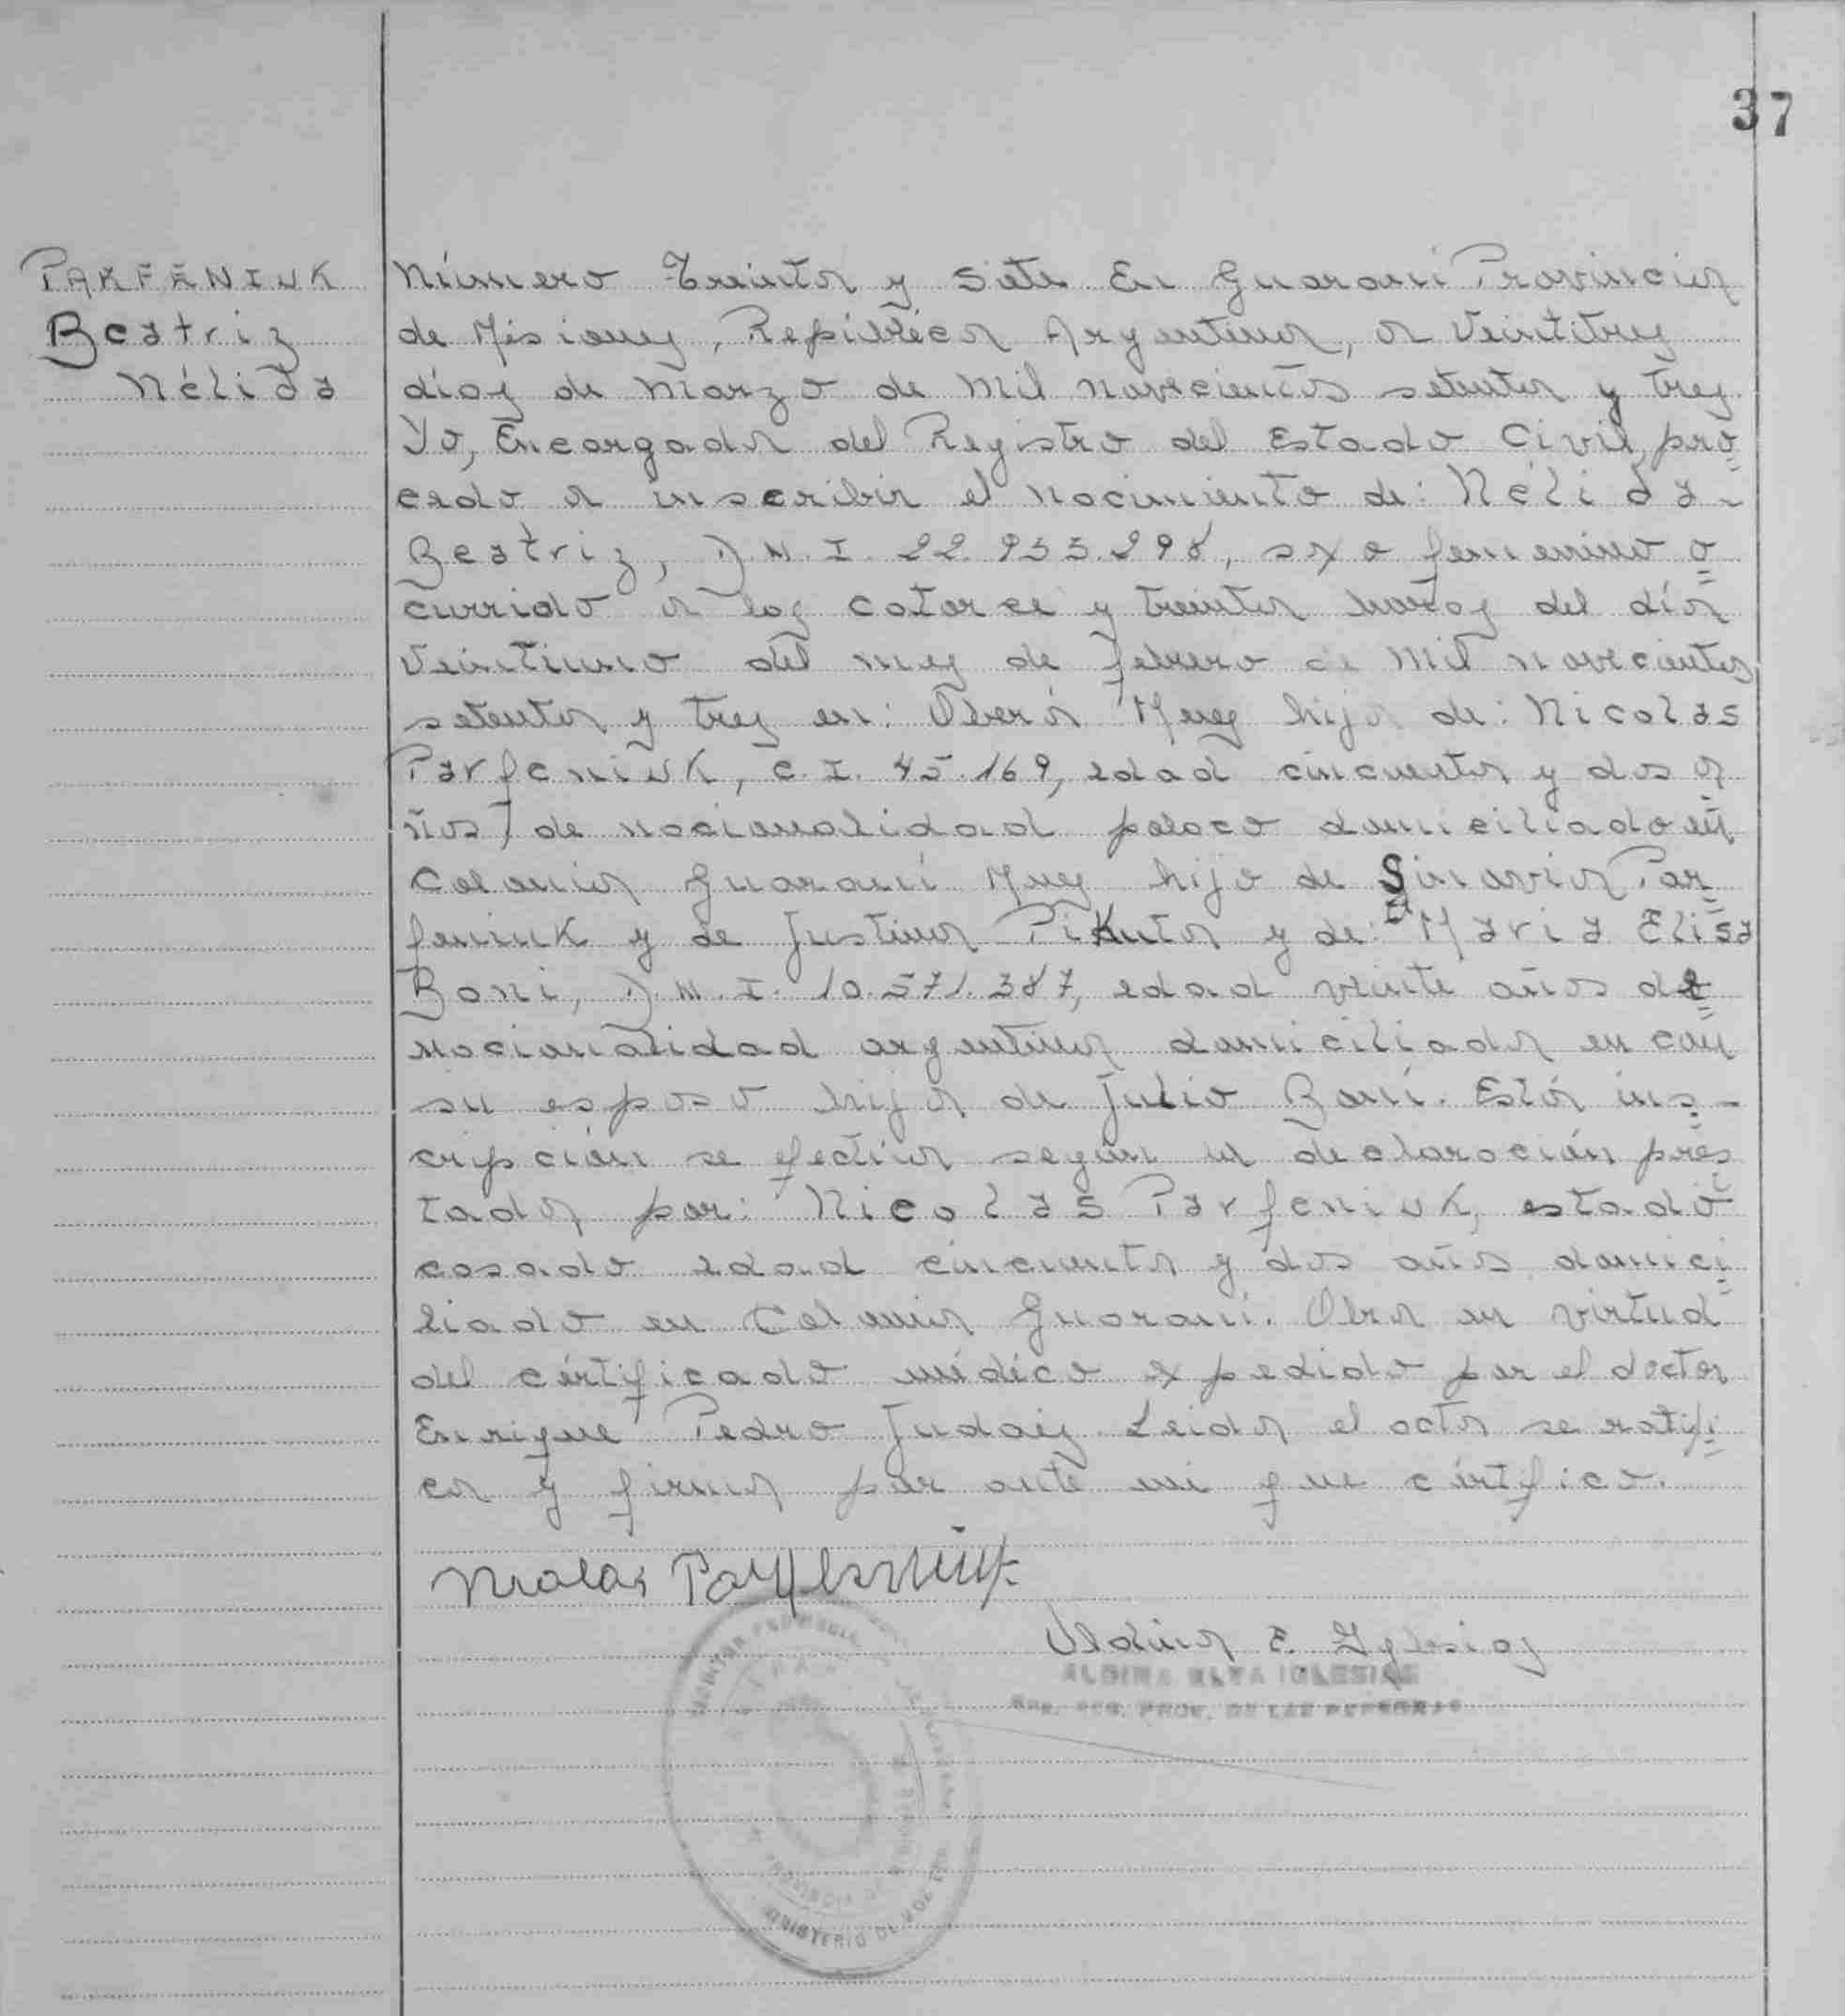 37
PARFENIUK
Beatriz
Nélida
Número Treinta y Siete En Guaraní Provincia
de Misiones, República Argentina, a Veintitres
días de Marzo de Mil novecientos setenta y tres
Yo, Encargada del Registro del Estado Civil, pro
cedo a inscribir el nacimiento de: Nélida
Beatriz, D.N.I. 22.935.298, sexo femenino o
currido a las catorce y treinta horas del día
Veintiuno del mes de febrero de Mil novecientos
setenta y tres en: Oberá Mnes hija de: Nicolas
Parfeniuk, C.I. 45.169, edad cincuenta y dos a
ños, de nacionalidad polaco domiciliado en
Colonia Guaraní Mnes hijo de Par
feniuk y de Justina Pikuta y de: Maria Elisa
Boni, D.N.I. 10.571.387, edad veinte años de
nacionalidad argentina domiciliada en con
su esposo hija de Julio Boni. Esta ins-
cripción se efectúa según la declaración pres
tada por: Nicolas Parfeniuk, estado
casado edad cincuenta y dos años domici
liado en Colonia Guaraní. Obra en virtud
del certificado médico expedido por el doctor
Enrique Pedro Leida el acta se ratifi
ca y firma por ante mi que certifico.
Nicolas Parfeniuk
Aldina E. Yglesias
ALDINA ELVA IGLESIAS
REG. PROV. DE LAS PERSONAS
MINISTERIO DE